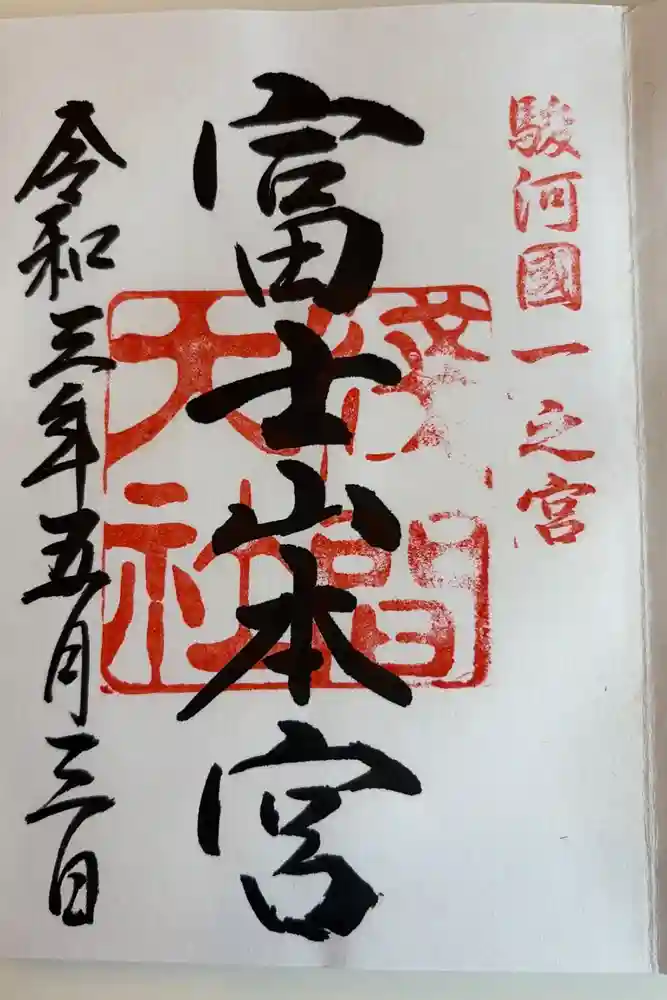 駿河國一之宮
富士山本宮
淺間
大社
令和三年五月三日